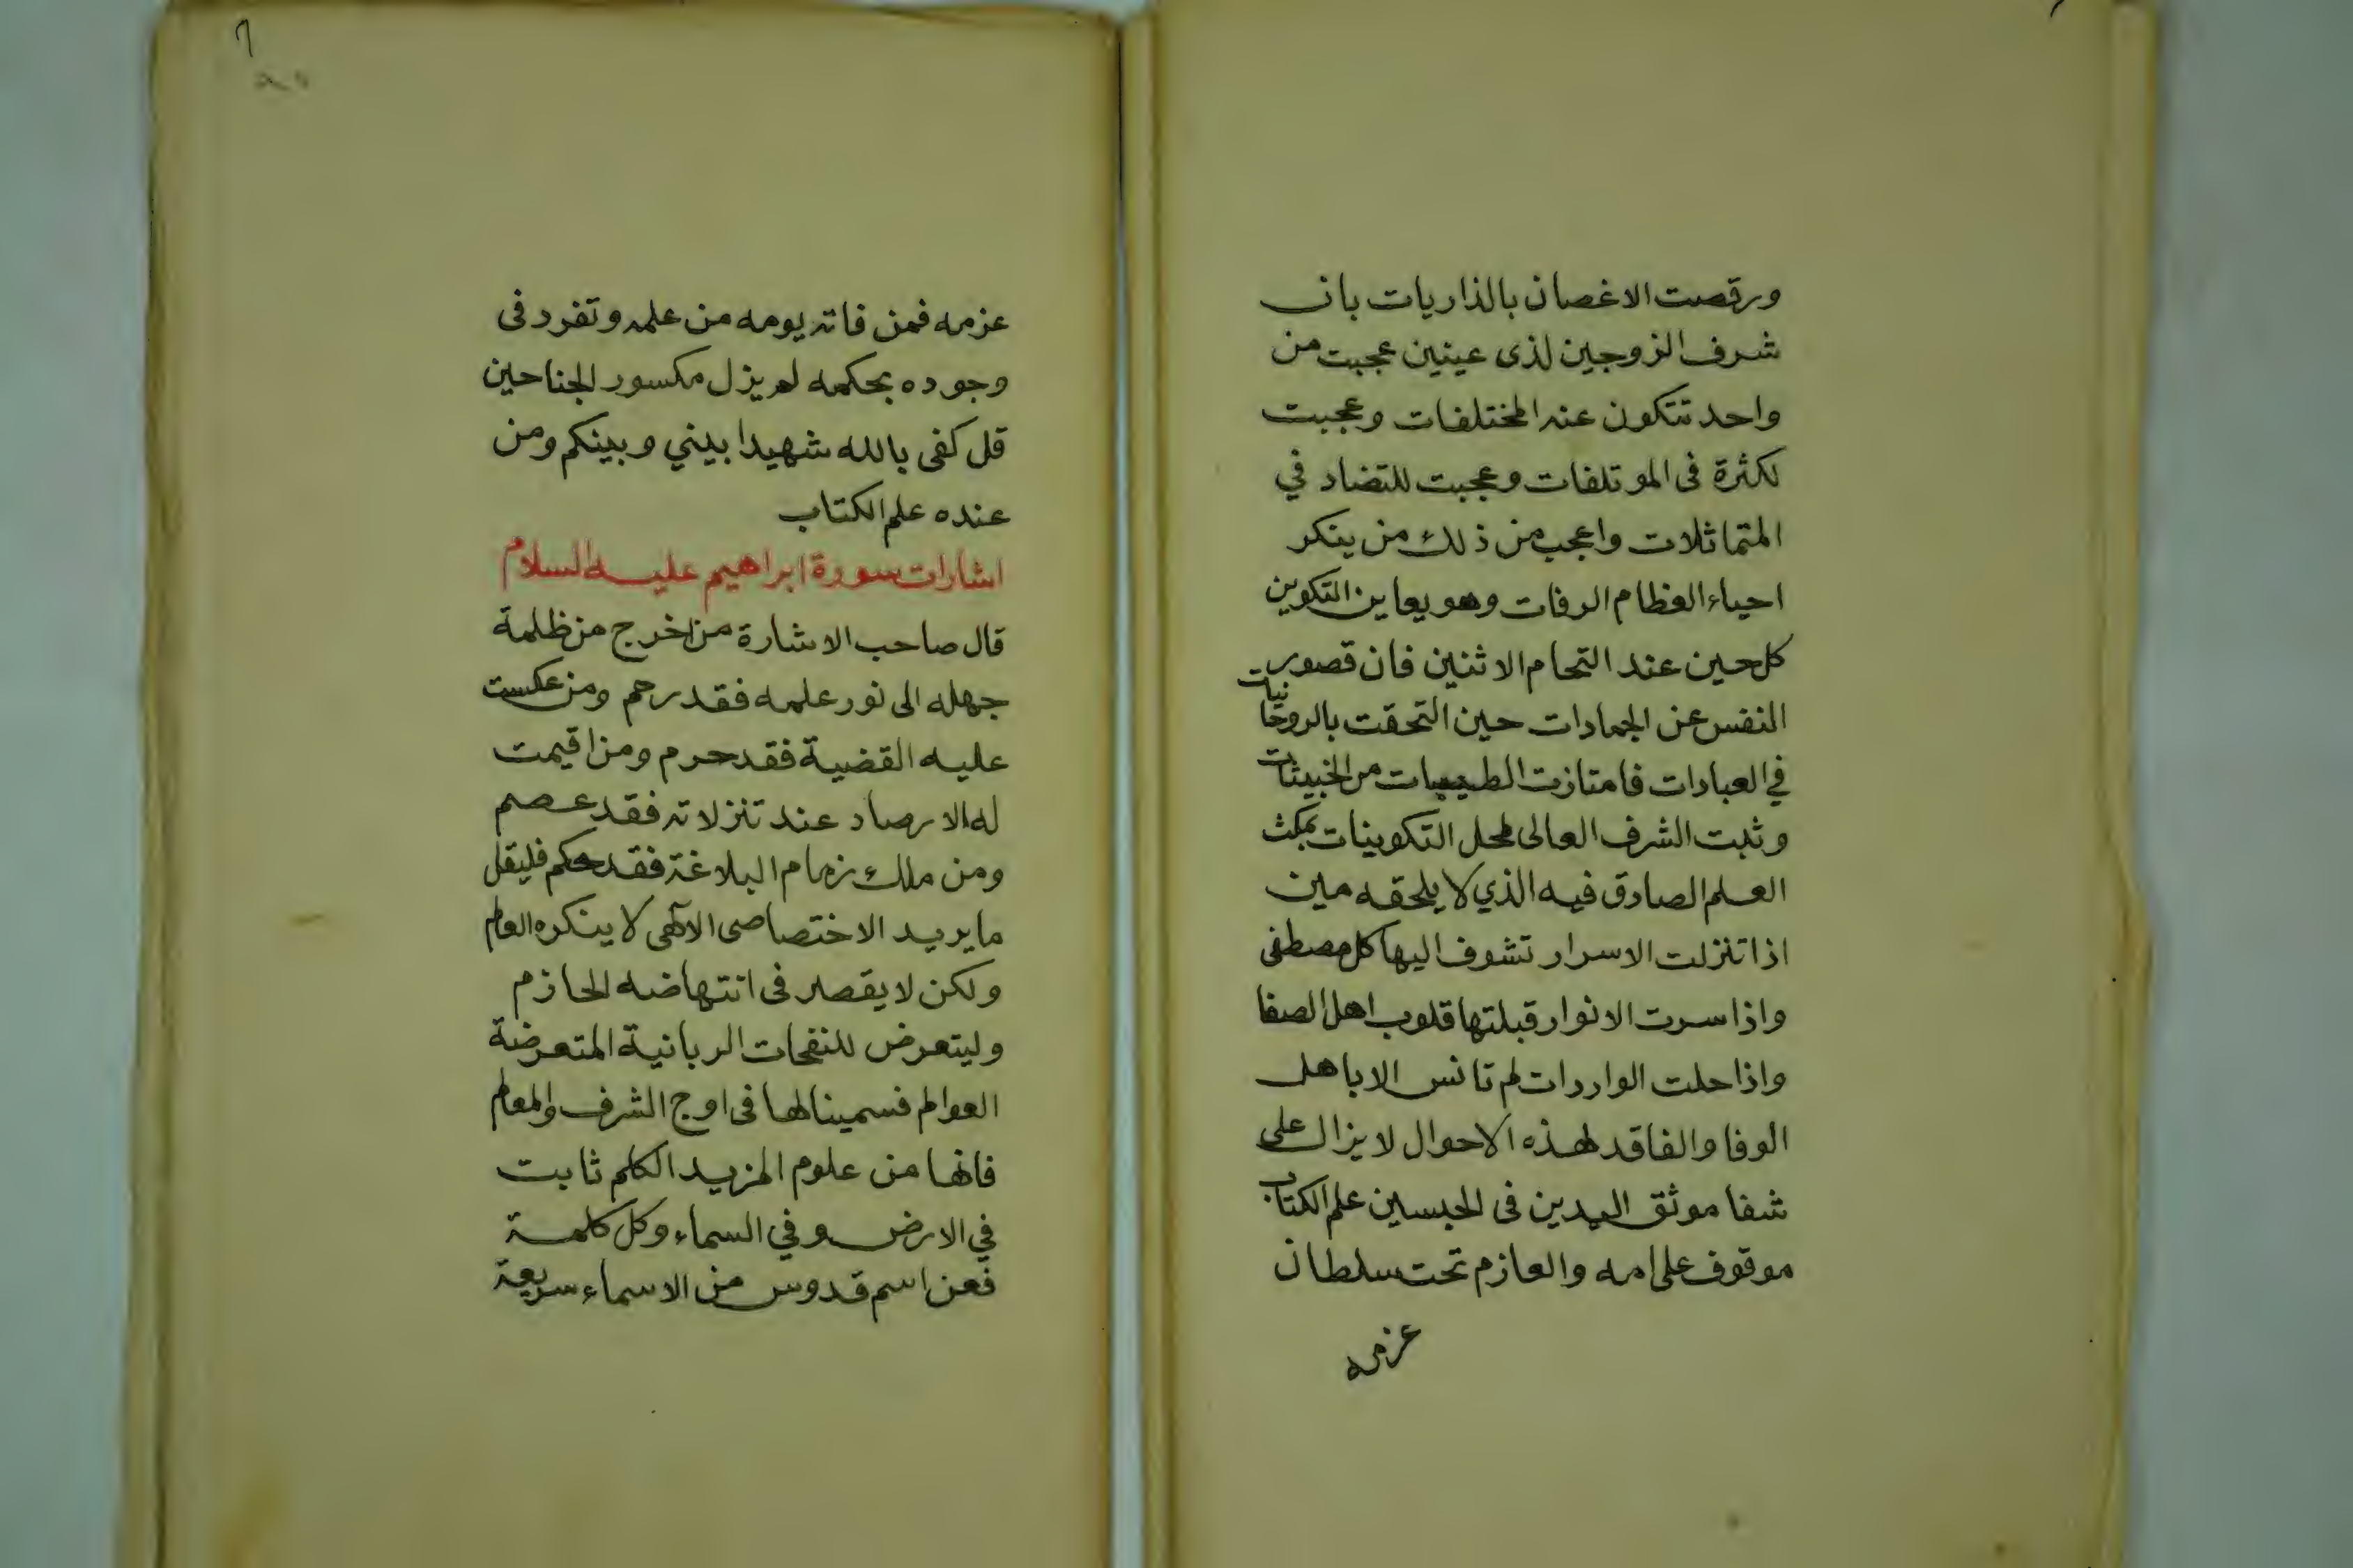 ورقصت الاغصان بالذاريات بان
شرف الزوجين لذى عينين عجبت من
واحد تتكون عنه المختلفات وعجبت
لكثرة فى الموتلفات وعجبت للتضاد في
المتماثلات واعجب من ذلك من ينكر
احياء العظام الرفات وهو يعاين التكوين
كل حين عند التحام الاثنين فان قصور
النفس عن الجمادات حين التحقت بالروحانيات
في العبادات فامتازت الطيبات من الخبيثات
وثبت الشرف العالى لمحل التكوينات بمكث
العلم الصادق فيه الذي لا يلحقه مين
اذا تنزلت الاسرار تشوف اليها كل مصطفى
واذا سرت الانوار قبلتها قلوب اهل الصفا
واذا حلت الواردات لم تانس الا باهل
الوفا والفاقد لهذه الاحوال لا يزال على
شفا موثق اليدين فى الحبسين علم الكتاب
موقوف على امه والعازم تحت سلطان
عزمه
عزمه فمن فاته يومه من علمه وتفرد فى
وجوده بحكمه لم يزل مكسور الجناحين
قل كفى بالله شهيدا بيني وبينكم ومن
عنده علم الكتاب
اشارات سورة ابراهيم عليه السلام
قال صاحب الاشارة من اخرج من ظلمة
جهله الى نور علمه فقد رحم ومن عكست
عليه القضية فقد حرم ومن اقيمت
له الارصاد عند تنزلاته فقد عصم
ومن ملك زمام البلاغة فقد حكم فليقل
ما يريد الاختصاصى الآلهى لا ينكره العالم
ولكن لا يقصر فى انتهاضه الحازم
وليتعرض للنفحات الربانية المتعرضة
العوالم فسميناها فى اوج الشرف والمعالم
فانها من علوم المزيد الكلم ثابت
في الارض وفي السماء وكل كلمة
فعن اسم قدوس من الاسماء سريعة